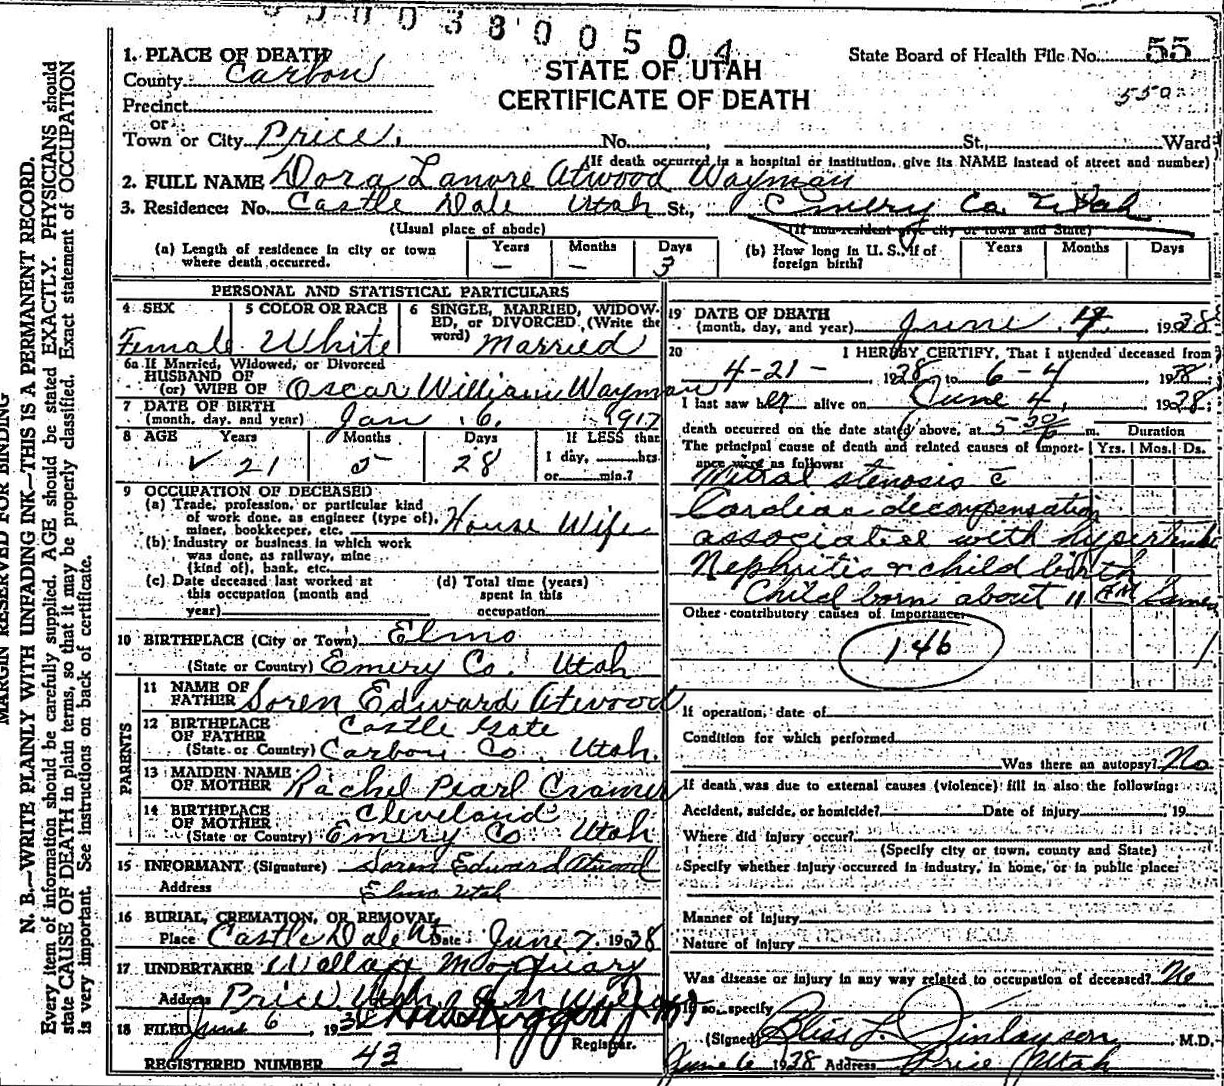 3500380050 4
1. PLACE OF DEATH
County Carbon
STATE OF UTAH
CERTIFICATE OF DEATH
State Board of Health File No. 55
550
Precinct
or
Town or City Price. No. St., Ward
(If death occurred in a hospital or institution, give its NAME instead of street and number)
2. FULL NAME Dora Lanore Atwood Wayman
3. Residence: No. Castle Dale Utah St., Emery Co. Utah
(Usual place of abode) (If non-resident give city or town and State)
(a) Length of residence in city or town where death occurred. Years – Months – Days 3
(b) How long in U. S., if of foreign birth? Years Months Days
PERSONAL AND STATISTICAL PARTICULARS
4 SEX Female
5 COLOR OR RACE White
6 SINGLE, MARRIED, WIDOWED, or DIVORCED (Write the word) Married
6a If Married, Widowed, or Divorced
HUSBAND OF
(or) WIFE OF Oscar William Wayman
7 DATE OF BIRTH
(month, day, and year) Jan 6. 1917
8 AGE Years 21 Months 5 Days 28 If LESS than 1 day, hrs. or min.?
9 OCCUPATION OF DECEASED
(a) Trade, profession, or particular kind
of work done, as engineer (type of),
miner, bookkeeper, etc. House Wife
(b) Industry or business in which work
was done, as railway, mine
(kind of), bank, etc.
(c) Date deceased last worked at
this occupation (month and
year)
(d) Total time (years)
spent in this
occupation
10 BIRTHPLACE (City or Town) Elmo
(State or Country) Emery Co. Utah
PARENTS
11 NAME OF
FATHER Soren Edward Atwood
12 BIRTHPLACE Castle Gate
OF FATHER
(State or Country) Carbon Co. Utah.
13 MAIDEN NAME
OF MOTHER Rachel Pearl Cramer
14 BIRTHPLACE Cleveland
OF MOTHER
(State or Country) Emery Co Utah
15 INFORMANT (Signature) Soren Edward Atwood
Address Elmo Utah
16 BURIAL, CREMATION, OR REMOVAL
Place Castle Dale Ut Date June 7. 1938
17 UNDERTAKER Wallace
Address Price Utah
18 FILED June 6 193
Registrar.
REGISTERED NUMBER 43
19 DATE OF DEATH
(month, day, and year) June 4. 1938
20 I HEREBY CERTIFY, That I attended deceased from
4-21- 1938 to 6-4 1938
I last saw her alive on June 4, 1938
death occurred on the date stated above, at 5 30 m. Duration
The principal cause of death and related causes of importance were as follows: Yrs. Mos. Ds.
Mitral stenosis c̄
Cardiac decompensation
associated with
Nephritis & child birth
Child born about 11 AM
Other contributory causes of importance:
146 1
If operation, date of
Condition for which performed
Was there an autopsy? No
If death was due to external causes (violence) fill in also the following:
Accident, suicide, or homicide? Date of injury , 19
Where did injury occur?
(Specify city or town, county and State)
Specify whether injury occurred in industry, in home, or in public place:
Manner of Injury
Nature of Injury
Was disease or injury in any way related to occupation of deceased? No
If so, specify
(Signed) Bliss L. Finlayson, M.D.
June 6 1938 Address Price Utah
MARGIN RESERVED FOR BINDING
N. B.—WRITE PLAINLY WITH UNFADING INK—THIS IS A PERMANENT RECORD.
Every item of information should be carefully supplied. AGE should be stated EXACTLY. PHYSICIANS should
state CAUSE OF DEATH in plain terms, so that it may be properly classified. Exact statement of OCCUPATION
is very important. See instructions on back of certificate.